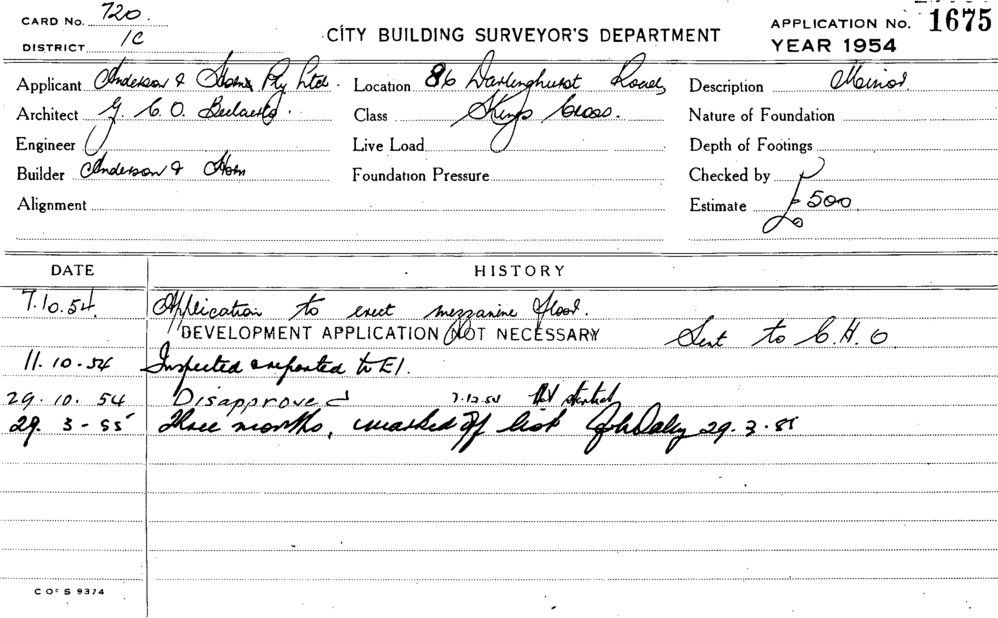 CARD No. 720.
DISTRICT 1C
CITY BUILDING SURVEYOR'S DEPARTMENT
APPLICATION No. 1675
YEAR 1954
Applicant Anderson & Stohn Pty Ltd.
Location 86 Darlinghurst Road,
Description Minor.
Architect G. C. O.
Class Kings Cross.
Nature of Foundation
Engineer
Live Load
Depth of Footings
Builder Anderson &
Foundation Pressure
Checked by
Alignment
Estimate £500
DATE HISTORY
7.10.54. Application to erect mezzanine floor.
DEVELOPMENT APPLICATION NOT NECESSARY Sent to C.H.O
11.10-54 Inspected & reported to E1.
29.10.54 Disapproved 7.12.54 Not started
29. 3-55 Three months, marked off list 29.3.55
C OF S 9374